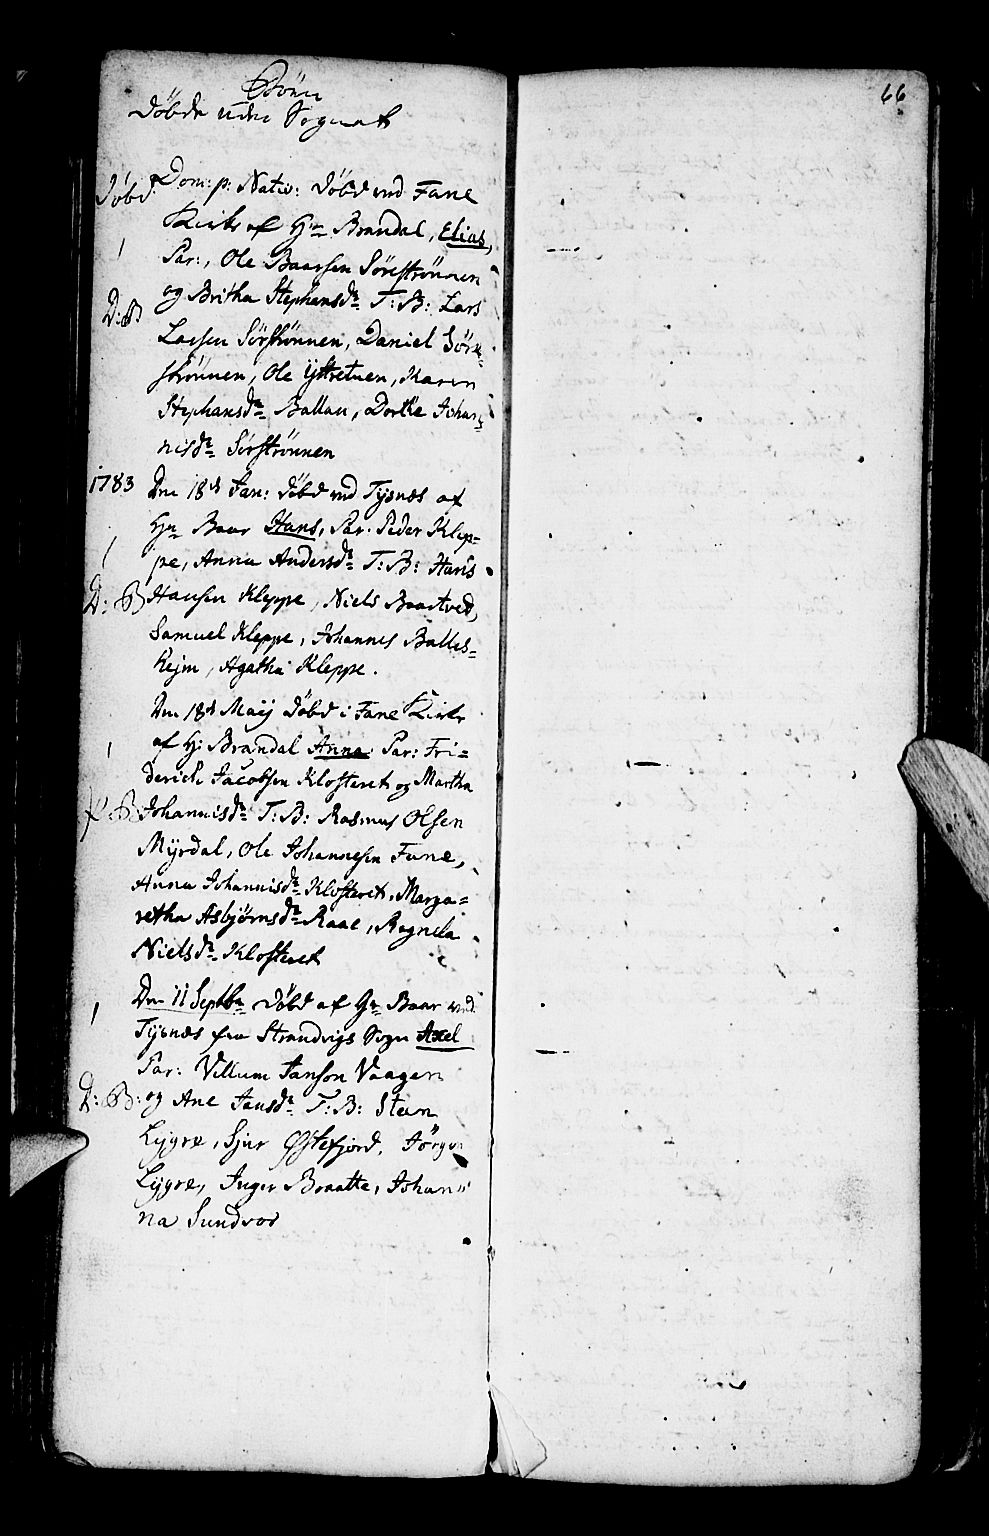 Börn
döbde uden Sognet
66
Döbd Dom: p: Nativ: döbd ved Fane
Kirke af Hr Brandal, Elias,
Par:, Ole Baarsen Söreströnnen
og Britha Stephansdr T: B: Lars
D: B
Larsen Sörströnnen, Daniel Söre-
strönnen, Ole Ystretuen, Karen
Stephansdr Ballau, Dorthe Johan-
nisdr Sörströnnen
1783 Den 18de Jan: döbd ved Tysnæs af
Hr Baar Hans, Par. Peder Klep-
pe, Anna Andersdr T: B: Hans
D: B Hansen Kleppe, Niels Baartved,
Samuel Kleppe, Johannes Balles-
hejm, Agatha Kleppe.
Den 18de Maij döbd i Fane Kirke
af Hr Brandal Anna Par: Fri-
derich Jacobsen Klosteret og Martha
B: Johannisdr T: B: Rasmus Olsen
Myrdal, Ole Johannesen Fane,
Anna Johannisdr Klosteret, Marga-
retha Asbjørnsdr Raae, Ragnela
Nielsdr Klosteret
Den 11 Septbr döbd af Hr Baar ved
Tysnæs fra Strandvigs Sogn Axel
Par: Villum Janson Vaagen
D: B: og Ane Jansdr T: B: Steen
Lygre, Sjur Østefjord, Jörgen
Lygre, Inger Braatte, Johan-
na Sundvor